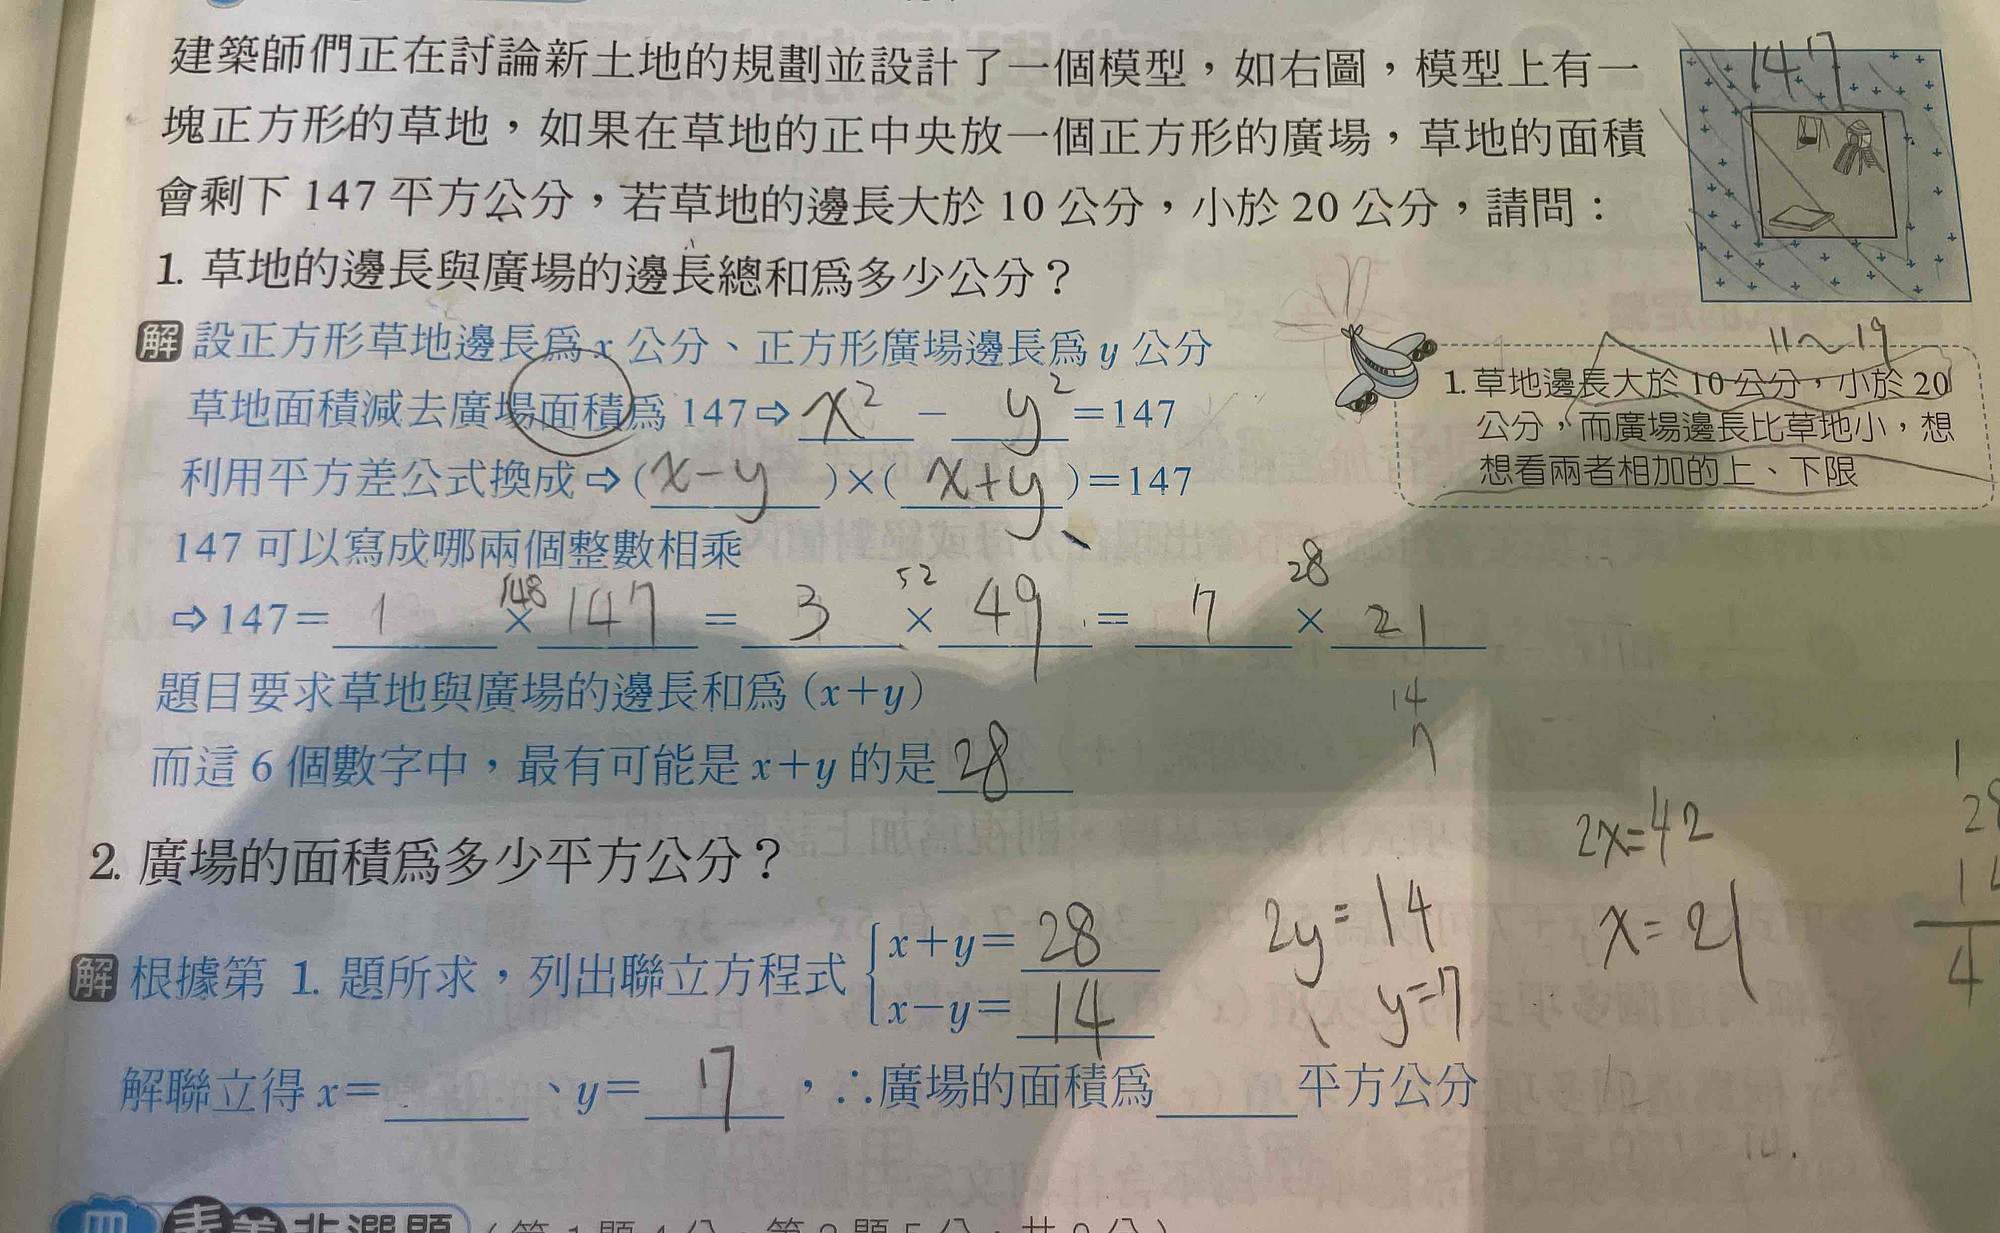 建築師們正在討論新土地的規劃並設計了一個模型，如右圖，模型上有一
塊正方形的草地，如果在草地的正中央放一個正方形的廣場，草地的面積
會剩下 147 平方公分，若草地的邊長大於 10 公分，小於 20 公分，請問：
147
1. 草地的邊長與廣場的邊長總和為多少公分？
解 設正方形草地邊長為 x 公分、正方形廣場邊長為 y 公分
草地面積減去廣場面積為 147⇨ x² － y² ＝147
利用平方差公式換成⇨( x-y )×( x+y )＝147
11～19
1. 草地邊長大於 10 公分，小於 20
公分，而廣場邊長比草地小，想
想看兩者相加的上、下限
147 可以寫成哪兩個整數相乘
148 52 28
⇨147＝ 1 × 147 ＝ 3 × 49 ＝ 7 × 21
14
7
題目要求草地與廣場的邊長和為 (x＋y)
而這 6 個數字中，最有可能是 x＋y 的是 28
2. 廣場的面積為多少平方公分？
2x=42
x=21
2y=14
y=7
1
28
14
4
解 根據第 1. 題所求，列出聯立方程式 { x＋y＝ 28
x－y＝ 14
解聯立得 x＝ 、y＝ 17 ，∴廣場的面積為 平方公分
四 素養非選題 (第 1 題 4 分，第 2 題 5 分，共 9 分)